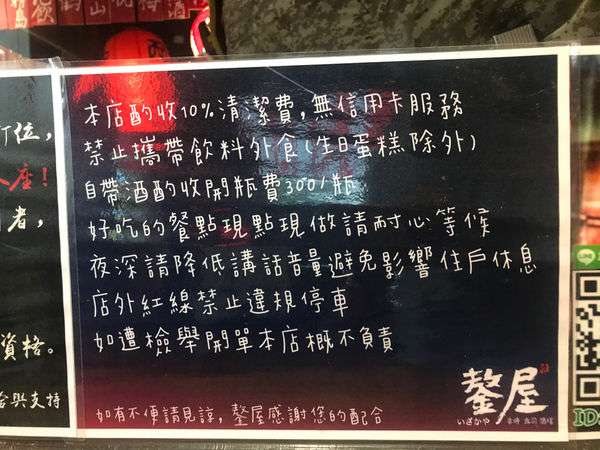 本店酌收10%清潔費,無信用卡服務
禁止攜帶飲料外食(生日蛋糕除外)
自帶酒酌收開瓶費300/瓶
好吃的餐點現點現做請耐心等候
夜深請降低講話音量避免影響住戶休息
店外紅線禁止違規停車
如遭檢舉開單本店概不負責
如有不便請見諒,鏊屋感謝您的配合
鏊屋
いざかや
位,
座!
者,
資格。
與支持
LINE
ID: